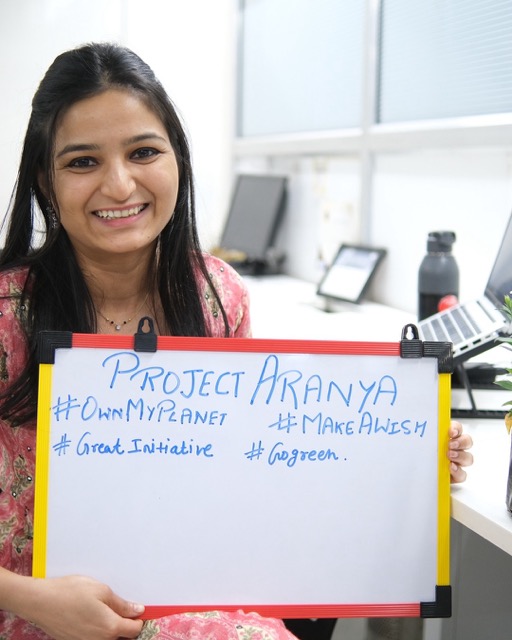 PROJECT ARANYA
#OWNMYPLANET #MAKEAWISH
#Great Initiative #Gogreen.